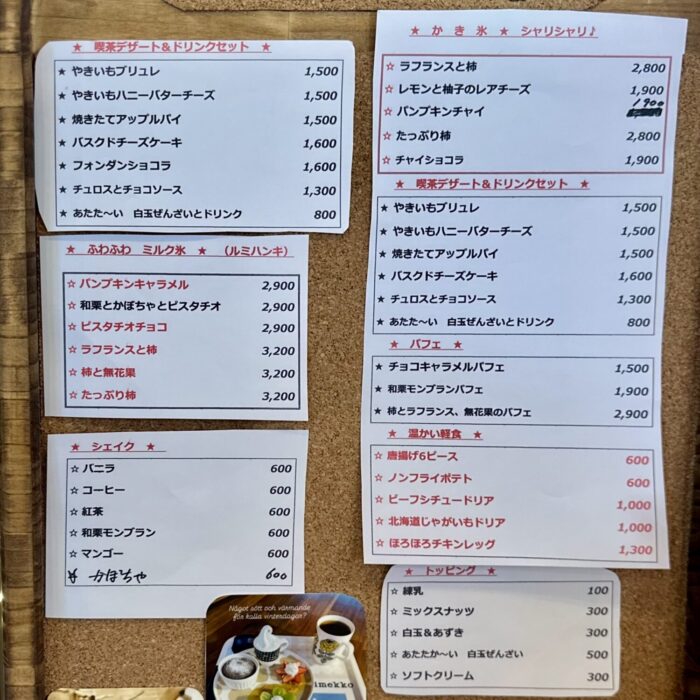 ★ 喫茶デザート&ドリンクセット ★
★ やきいもブリュレ 1,500
★ やきいもハニーバターチーズ 1,500
★ 焼きたてアップルパイ 1,500
★ バスクドチーズケーキ 1,600
★ フォンダンショコラ 1,600
★ チュロスとチョコソース 1,300
★ あたた～い 白玉ぜんざいとドリンク 800
★ ふわふわ ミルク氷 ★ (ルミハンギ)
☆ パンプキンキャラメル 2,900
☆ 和栗とかぼちゃとピスタチオ 2,900
☆ ピスタチオチョコ 2,900
☆ ラフランスと柿 3,200
☆ 柿と無花果 3,200
☆ たっぷり柿 3,200
★ シェイク ★
☆ バニラ 600
☆ コーヒー 600
☆ 紅茶 600
☆ 和栗モンブラン 600
☆ マンゴー 600
☆ かぼちゃ 600
★ か き 氷 ★ シャリシャリ♪
☆ ラフランスと柿 2,800
☆ レモンと柚子のレアチーズ 1,900
☆ パンプキンチャイ 1900
☆ たっぷり柿 2,800
☆ チャイショコラ 1,900
★ 喫茶デザート&ドリンクセット ★
★ やきいもブリュレ 1,500
★ やきいもハニーバターチーズ 1,500
★ 焼きたてアップルパイ 1,500
★ バスクドチーズケーキ 1,600
★ チュロスとチョコソース 1,300
★ あたた～い 白玉ぜんざいとドリンク 800
★ パフェ ★
★ チョコキャラメルパフェ 1,500
★ 和栗モンブランパフェ 1,900
★ 柿とラフランス、無花果のパフェ 2,900
★ 温かい軽食 ★
☆ 唐揚げ6ピース 600
☆ ノンフライポテト 600
☆ ビーフシチュードリア 1,000
☆ 北海道じゃがいもドリア 1,000
☆ ほろほろチキンレッグ 1,300
★ トッピング ★
☆ 練乳 100
☆ ミックスナッツ 300
☆ 白玉&あずき 300
☆ あたたか～い 白玉ぜんざい 500
☆ ソフトクリーム 300
Något sött och värmande
för kalla vinterdagar?
imekko